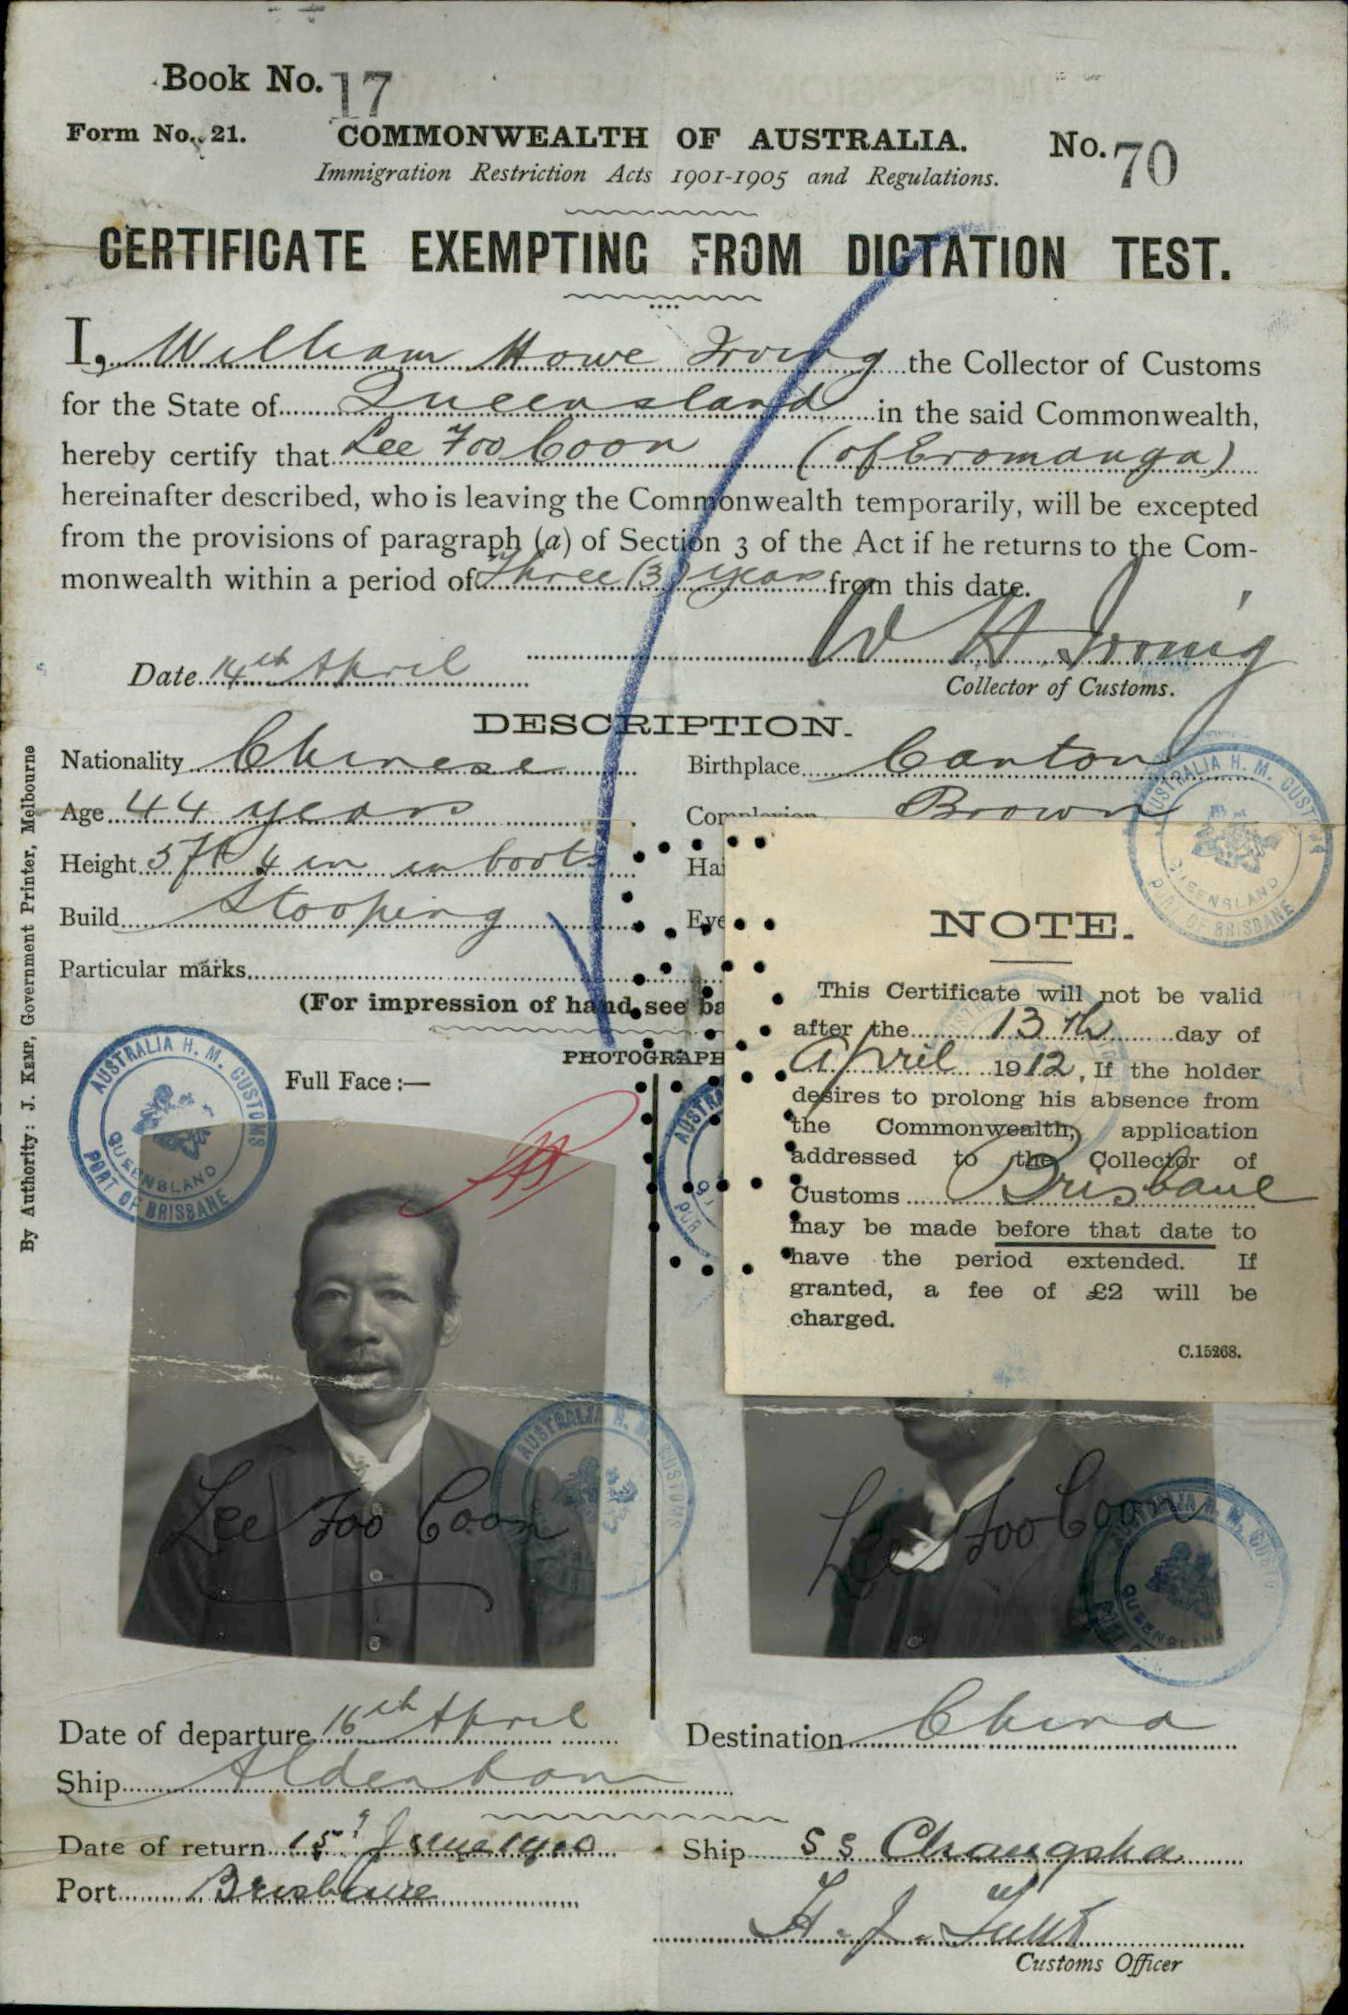 Book No. 17
Form No. 21.
COMMONWEALTH OF AUSTRALIA.
No. 70
Immigration Restriction Acts 1901-1905 and Regulations.
CERTIFICATE EXEMPTING FROM DICTATION TEST.
I, William Howe Irving the Collector of Customs
for the State of Queensland in the said Commonwealth,
hereby certify that Lee Foo Coon (of Eromanga)
hereinafter described, who is leaving the Commonwealth temporarily, will be excepted
from the provisions of paragraph (a) of Section 3 of the Act if he returns to the Com-
monwealth within a period of Three (3) years from this date.
W H Irving
Date 14th April
Collector of Customs.
DESCRIPTION.
Nationality Chinese
Birthplace Canton
Age 44 years
Complexion Brown
Height 5 ft 4 in in boots
Hai
Build Stooping
Eye
Particular marks
(For impression of hand see ba
PHOTOGRAPH
Full Face:—
NOTE.
This Certificate will not be valid
after the 13th day of
April 1912. If the holder
desires to prolong his absence from
the Commonwealth, application
addressed to the Collector of
Customs Brisbane
may be made before that date to
have the period extended. If
granted, a fee of £2 will be
charged.
C.15268.
AUSTRALIA H. M. CUSTOMS
QUEENSLAND
PORT OF BRISBANE
Lee Foo Coon
Lee Foo Coon
Date of departure 16th April
Destination China
Ship Aldenham
Date of return 15
Ship SS Changsha
Port Brisbane
H. J.
Customs Officer
By Authority: J. KEMP, Government Printer, Melbourne